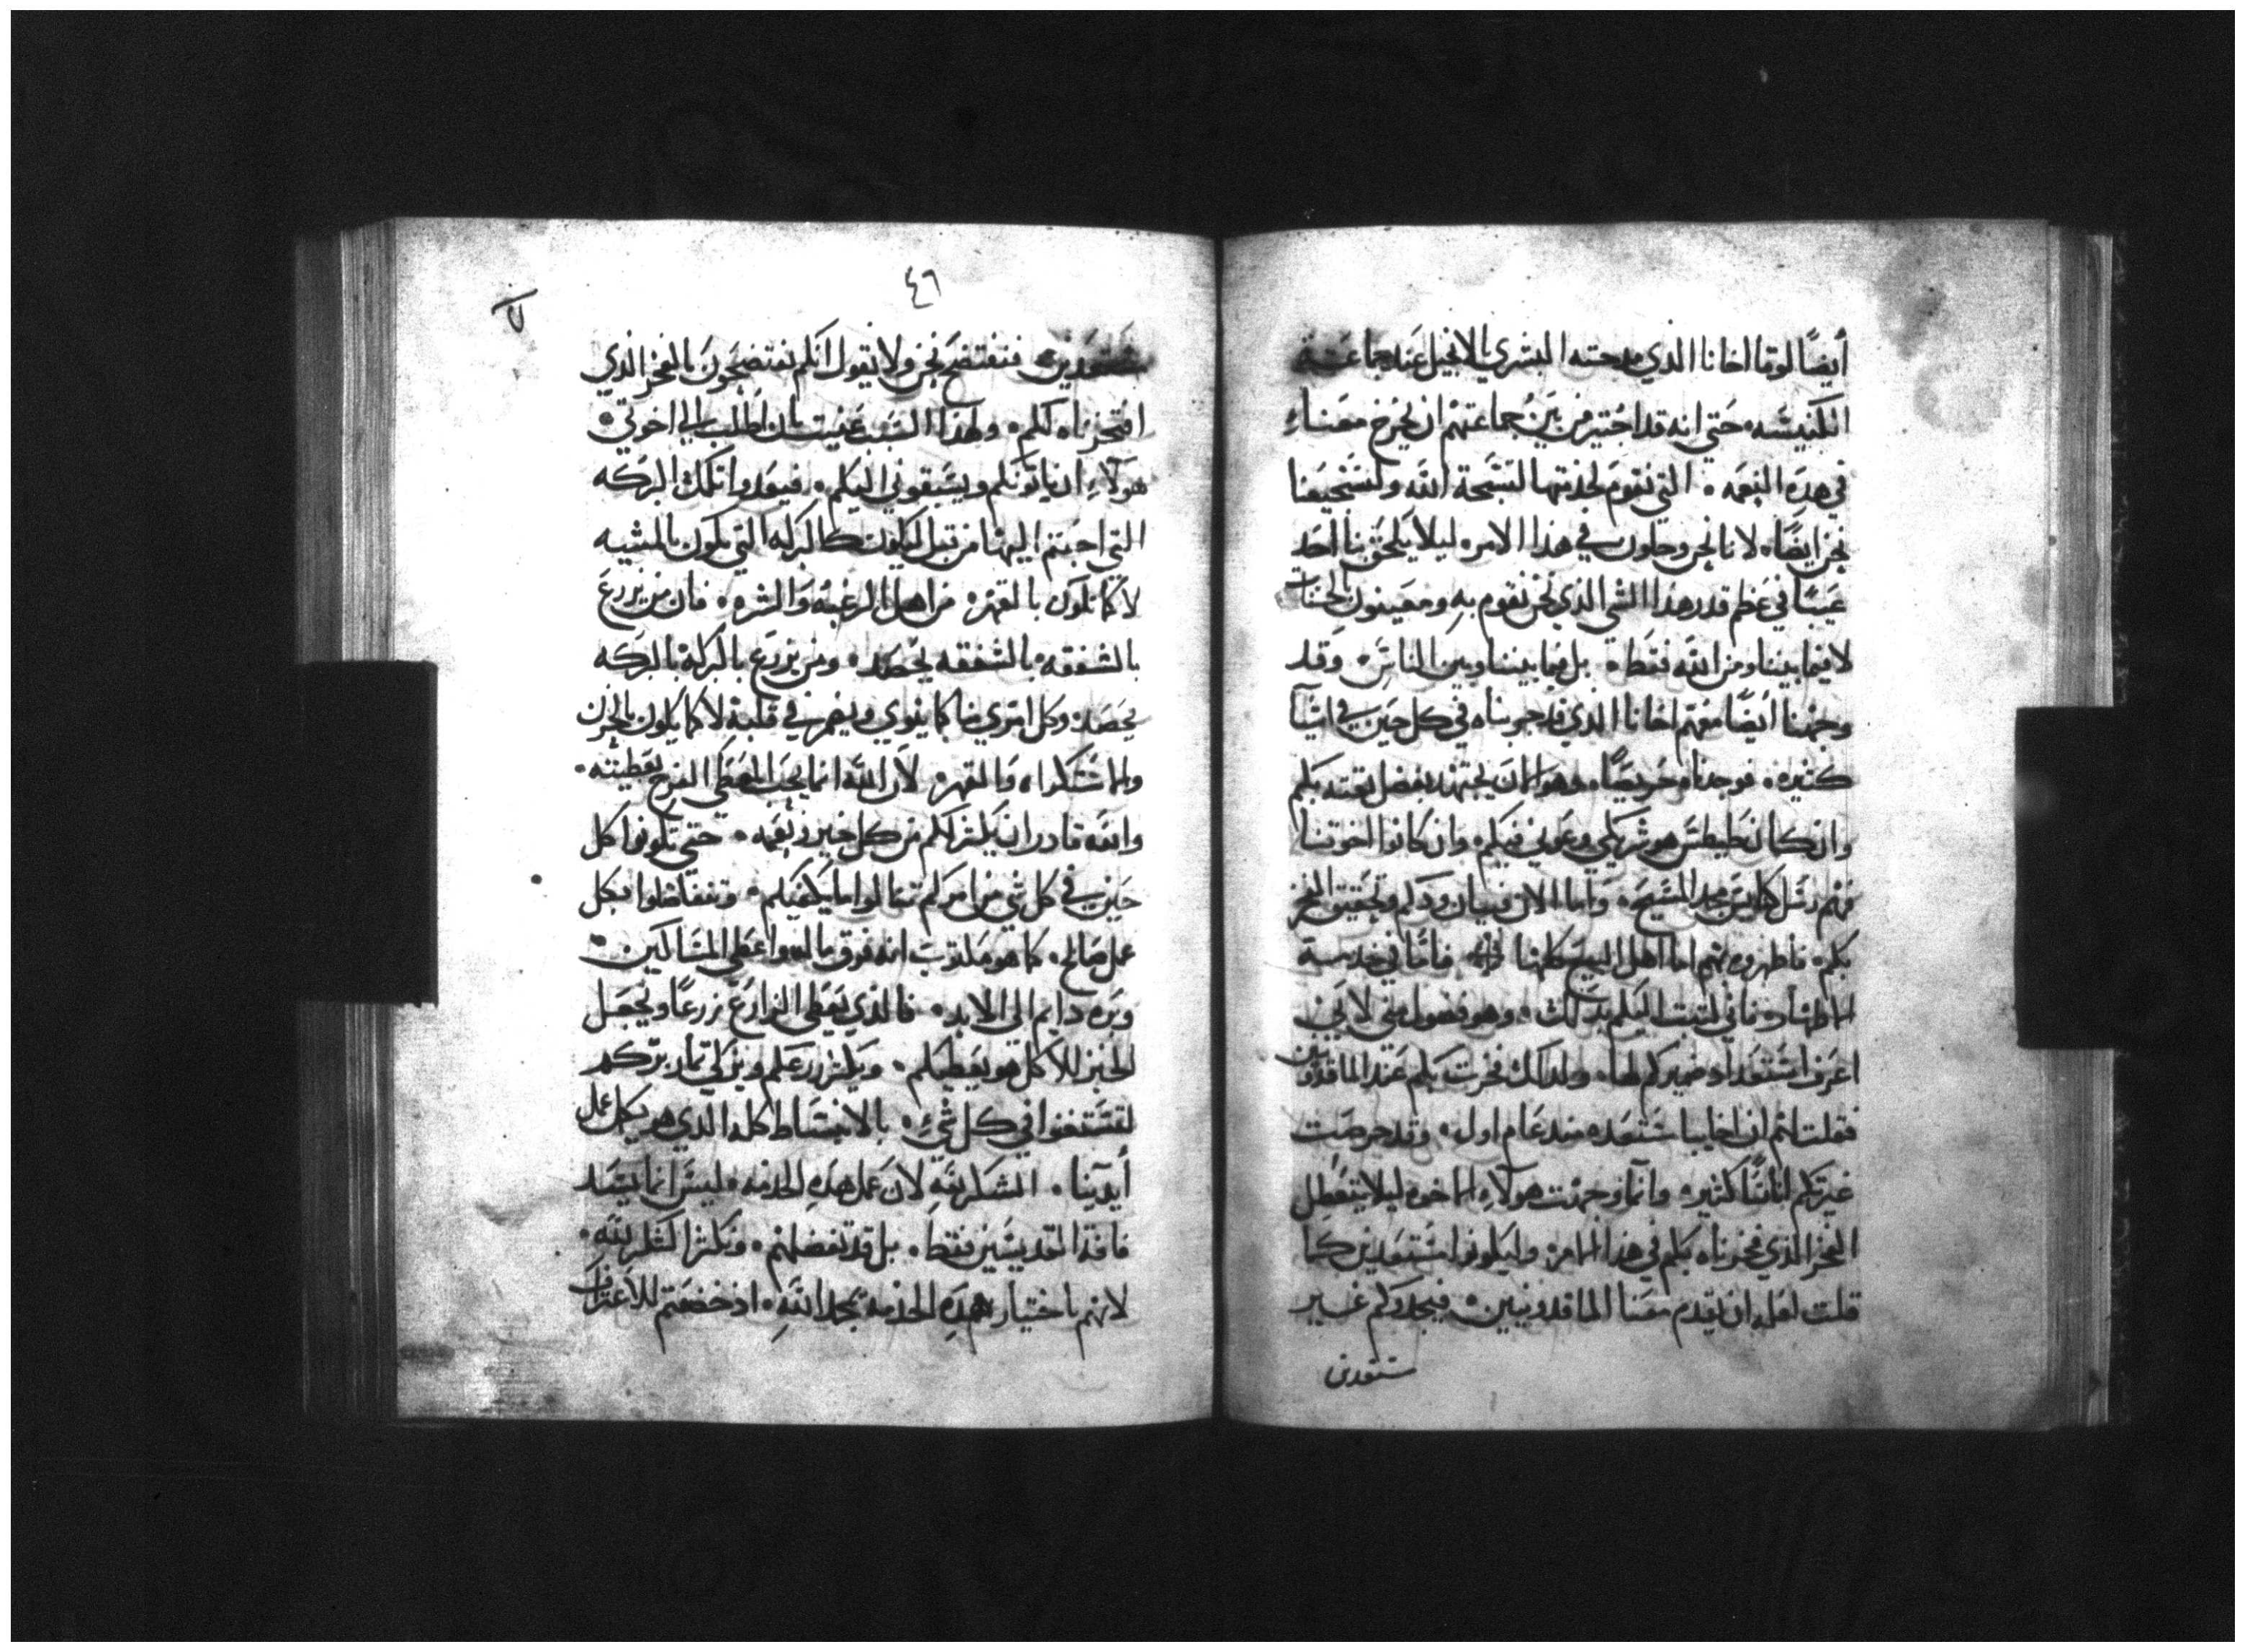 أيضًا لوقا اخانا الذي مدحته البشري بالانجيل عند جماعة
الكنيسه حتى انه قد اختير من بين جماعتهم ان يخرج معنا
في هذه النعمه التي نقوم لخدمتها لتسبحة الله ولتشجيعنا
نحن ايضًا لانا نحن وجلون في هذا الامر ليلا يلحق بنا احد
عيبًا في عظم قدر هذا الشي الذي نحن نقوم به ومعينون بالحسنات
لا فيما بيننا ومن الله فقط بل فيما بيننا وبين الناس وقد
وجهنا أيضًا معهم اخانا الذي قد جربناه في كل حين في اشيآ
كثيره فوجدناه حريصًا وهو الان يجتهد بفضل ثقته بكم
وان كان طيطس هو شريكي وعوني فيكم وان كانوا اخوتنا
فهم رسل كنايس مجد المسيح واما الان فبيان ودكم وتحقيق الفخر
بكم فاظهروه بهم امام اهل البيع كلها فاما في خدمة
الاطهار فاني كتبت اليكم بذلك وهو فضول مني لاني
اعرف استعداد ضميركم لها ولذلك فخرت بكم عند الماقدونين
فقلت لهم ان اخاييا مستعده منذ عام اول وقد حرصت
غيرتكم اناسًا كثير وانما وجهت هولاء الاخوه ليلا يتعطل
الفخر الذي فخرناه بكم في هذا الامر وليكونوا مستعدين كما
قلت لعله ان يقدم معنا الماقدونيين فيجدوكم غير
مستعدين
٤٦
مستعدين فنفتضح نحن ولا نقول انكم تفتضحون بالفخر الذي
افتخرناه لكم ولهذا السبب عنيت بان اطلب الي اخوتي
هولاء ان ياتونكم ويسبقوني اليكم فيعدوا تلك البركه
التي اجبتم اليها من قبل ليكون كالبركه التي تكون بالمشيه
لا كما تكون بالقهر من اهل الرغبة والشره فان من يزرع
بالشفقه بالشفقه يحصد ومن يزرع بالبركة بالبركه
يحصد وكل امري منا كما ينوي ويضمر في قلبه لا كما يكون بالحزن
والاستكراه والقهر لان الله انما يحب المعطي الفرح بعطيته
والله قادر ان يكثر لكم من كل خير ونعمه حتى تكونوا كل
حين في كل شي من امركم تنالوا ما يكفيكم وتتفاضلوا بكل
عمل صالح كما هو مكتوب انه فرق ماله واعطى المساكين
وبره دايم الى الابد فالذي يعطي الزارع زرعًا ويجعل
الخبز للاكل هو يعطيكم ويكثر زرعكم ويزكي ثمار بركم
لتستغنوا في كل شيء بالانبساط كله الذي هو يكمل عمل
أيدينا الشكر لله لان عمل هذه الخدمه ليس انما يسد
فاقة القديسين فقط بل قد تفضلهم وتكثر الشكر لله
لانهم باختيار هذه الخدمه نمجد الله اذ خضعتم للاعتراف